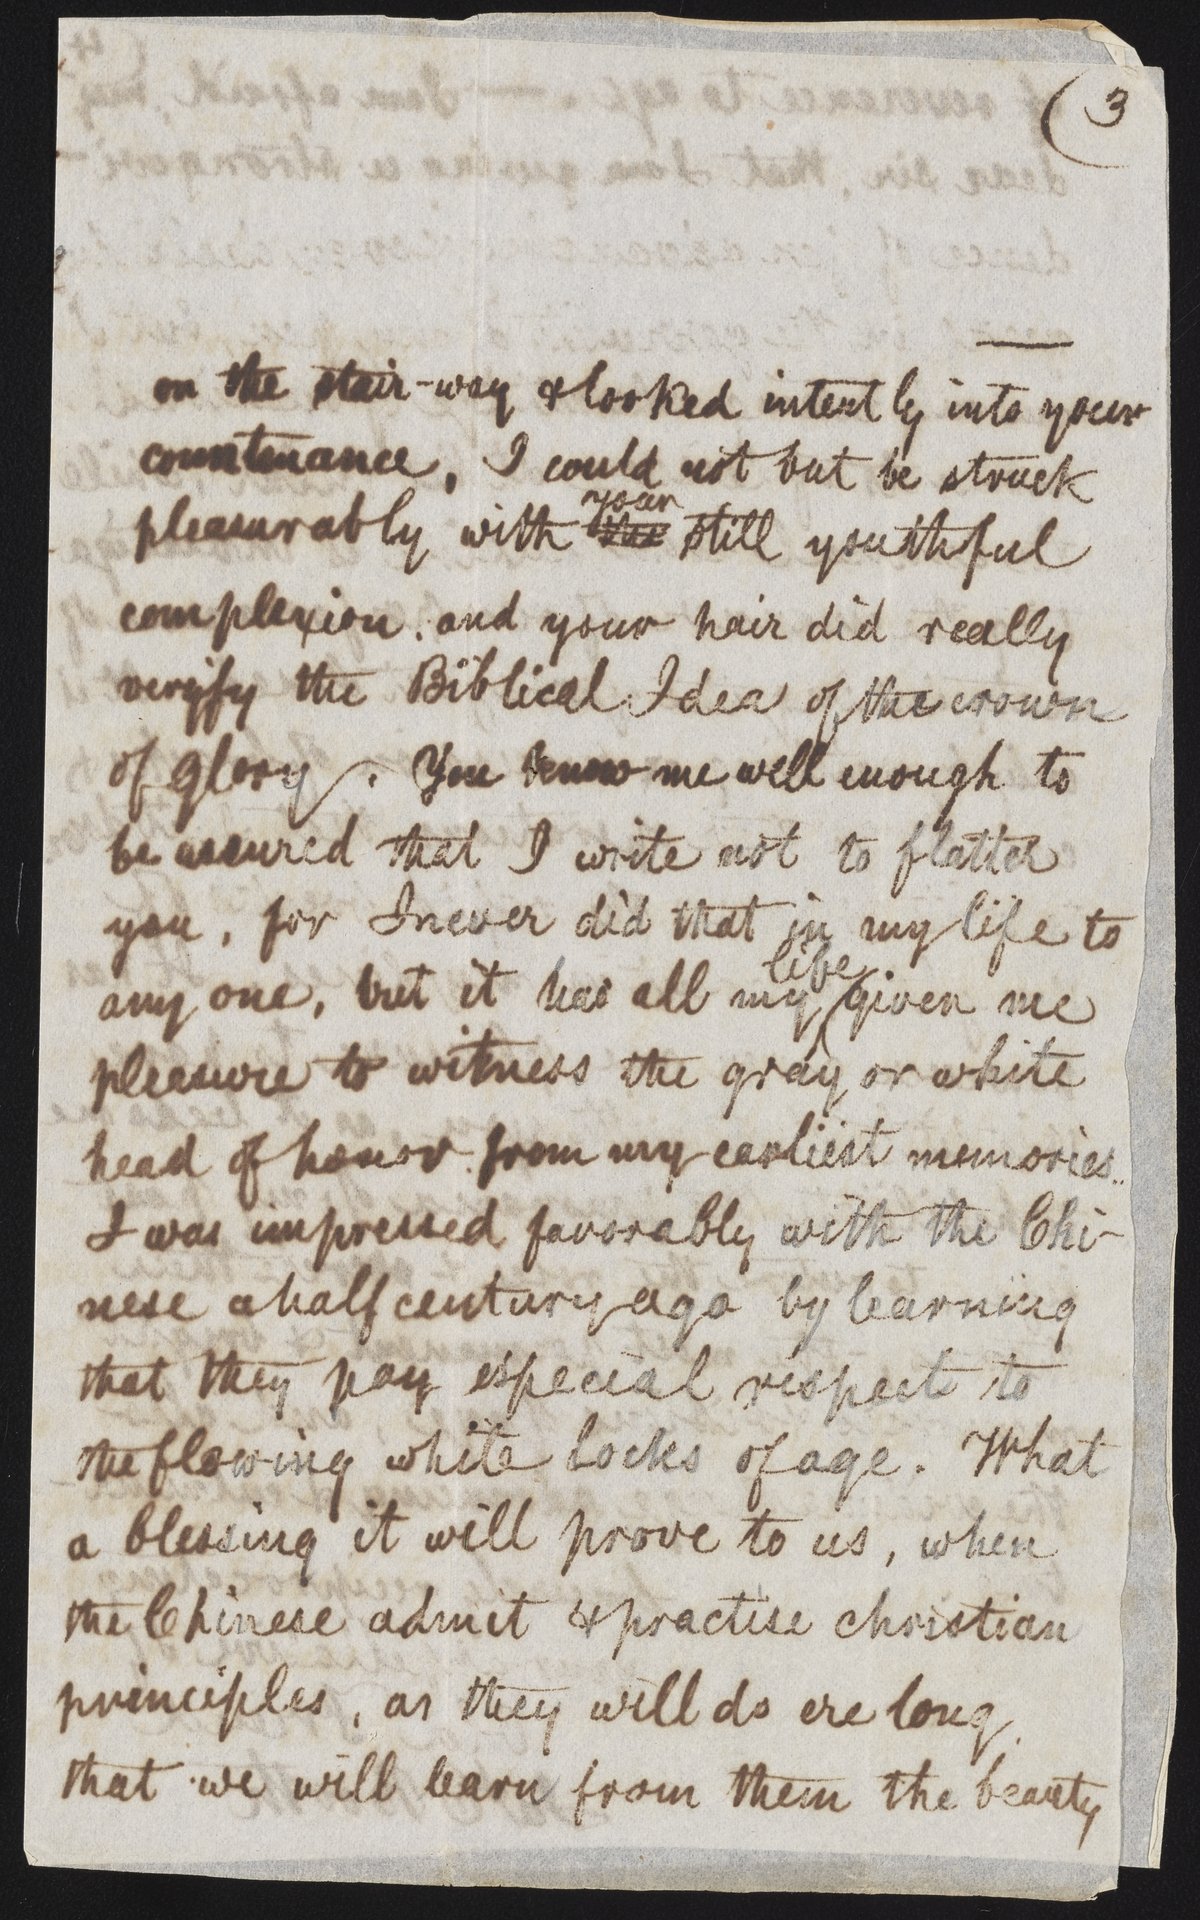 (3
on the stair-way & looked intently into your
countenance, I could not but be struck
pleasurably with your still youthful
complexion. and your hair did really
veryfy the Biblical Idea of the crown
of glory. You know me well enough to
be assured that I write not to flatter
you, for I never did that in my life to
any one, but it has all my life given me
pleasure to witness the gray or white
head of honor from my earliest memories..
I was impressed favorably with the Chi-
nese a half century ago by learning
that they pay especial respect to
the flowing white locks of age. What
a blessing it will prove to us, when
the Chinese admit & practise christian
principles, as they will do ere long,
that we will learn from them the beauty